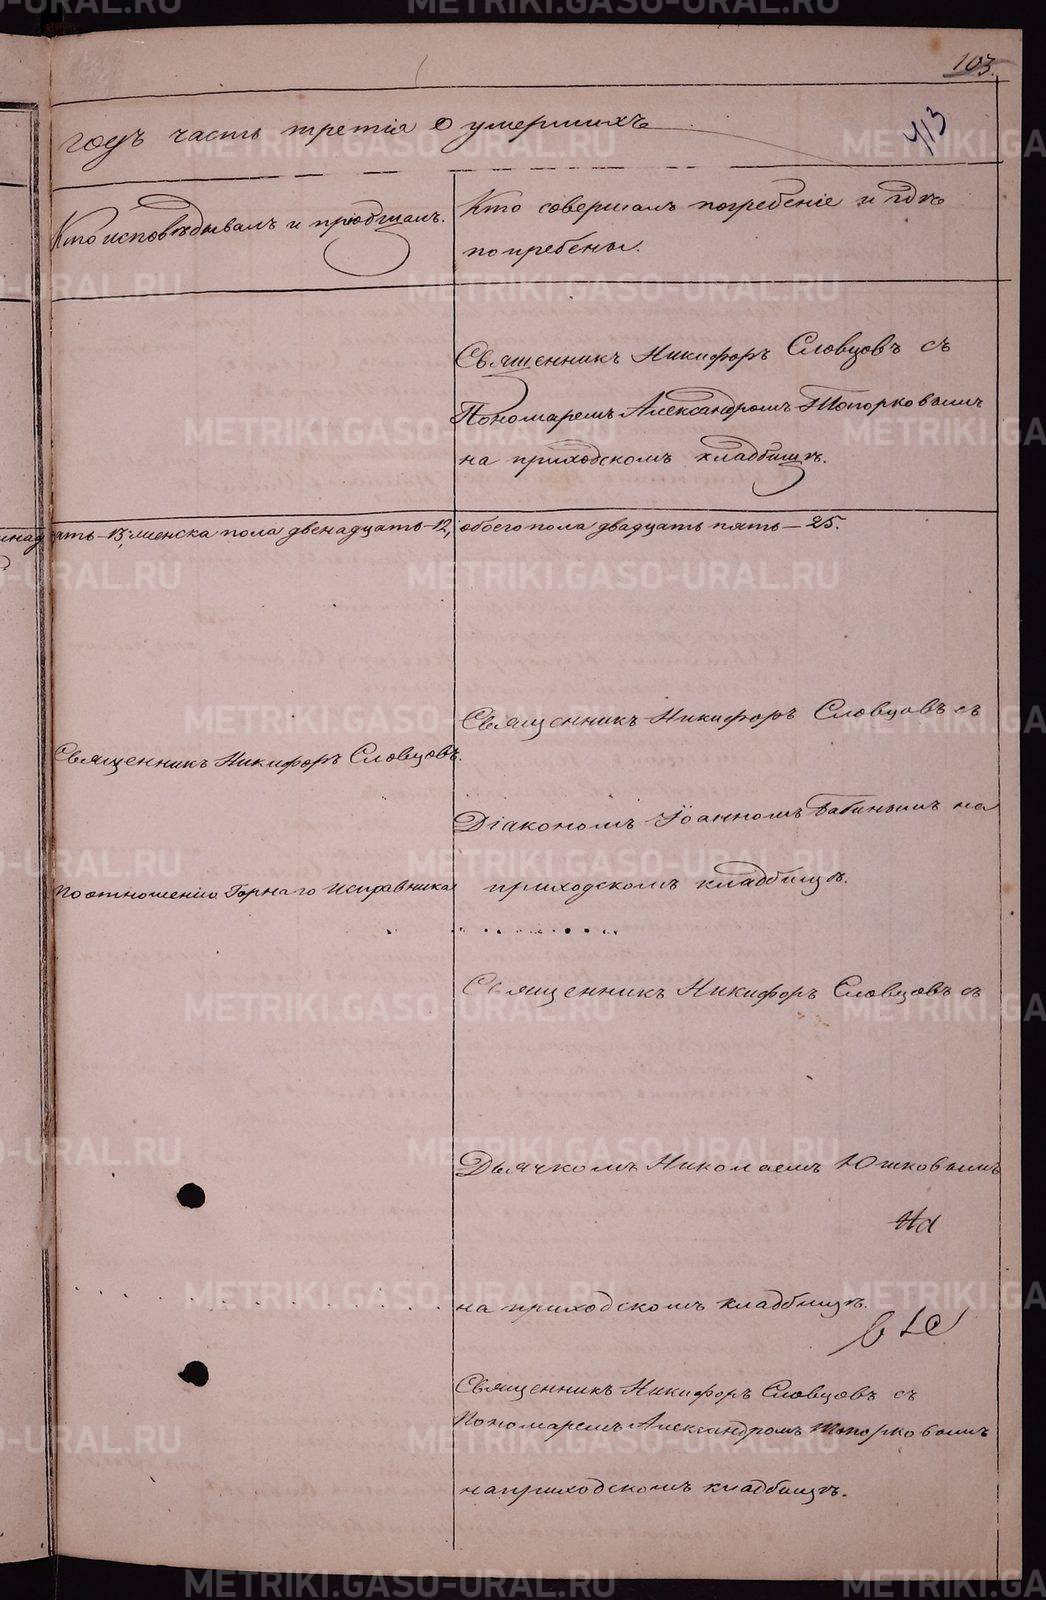 103.
413
годъ часть третія о умершихъ
Кто исповѣдывалъ и пріобщалъ.
Кто совершалъ погребеніе и гдѣ
погребены.
Священникъ Никифоръ Словцовъ съ
Пономаремъ Александромъ Топорковымъ
на приходскомъ кладбищѣ.
надцать - 13, женска пола двенадцать - 12, обоего пола двадцать пять - 25.
Священникъ Никифоръ Словцовъ съ
Священникъ Никифоръ Словцовъ.
Діакономъ Іоанномъ Бабинымъ на
По отношенію Горнаго Исправника
приходскомъ кладбищѣ.
Священникъ Никифоръ Словцовъ съ
Дьячкомъ Николаемъ Юшковымъ
На
на приходскомъ кладбищѣ.
Священникъ Никифоръ Словцовъ съ
Пономаремъ Александромъ Топорковымъ
на приходскомъ кладбищѣ.
METRIKI.GASO-URAL.RU